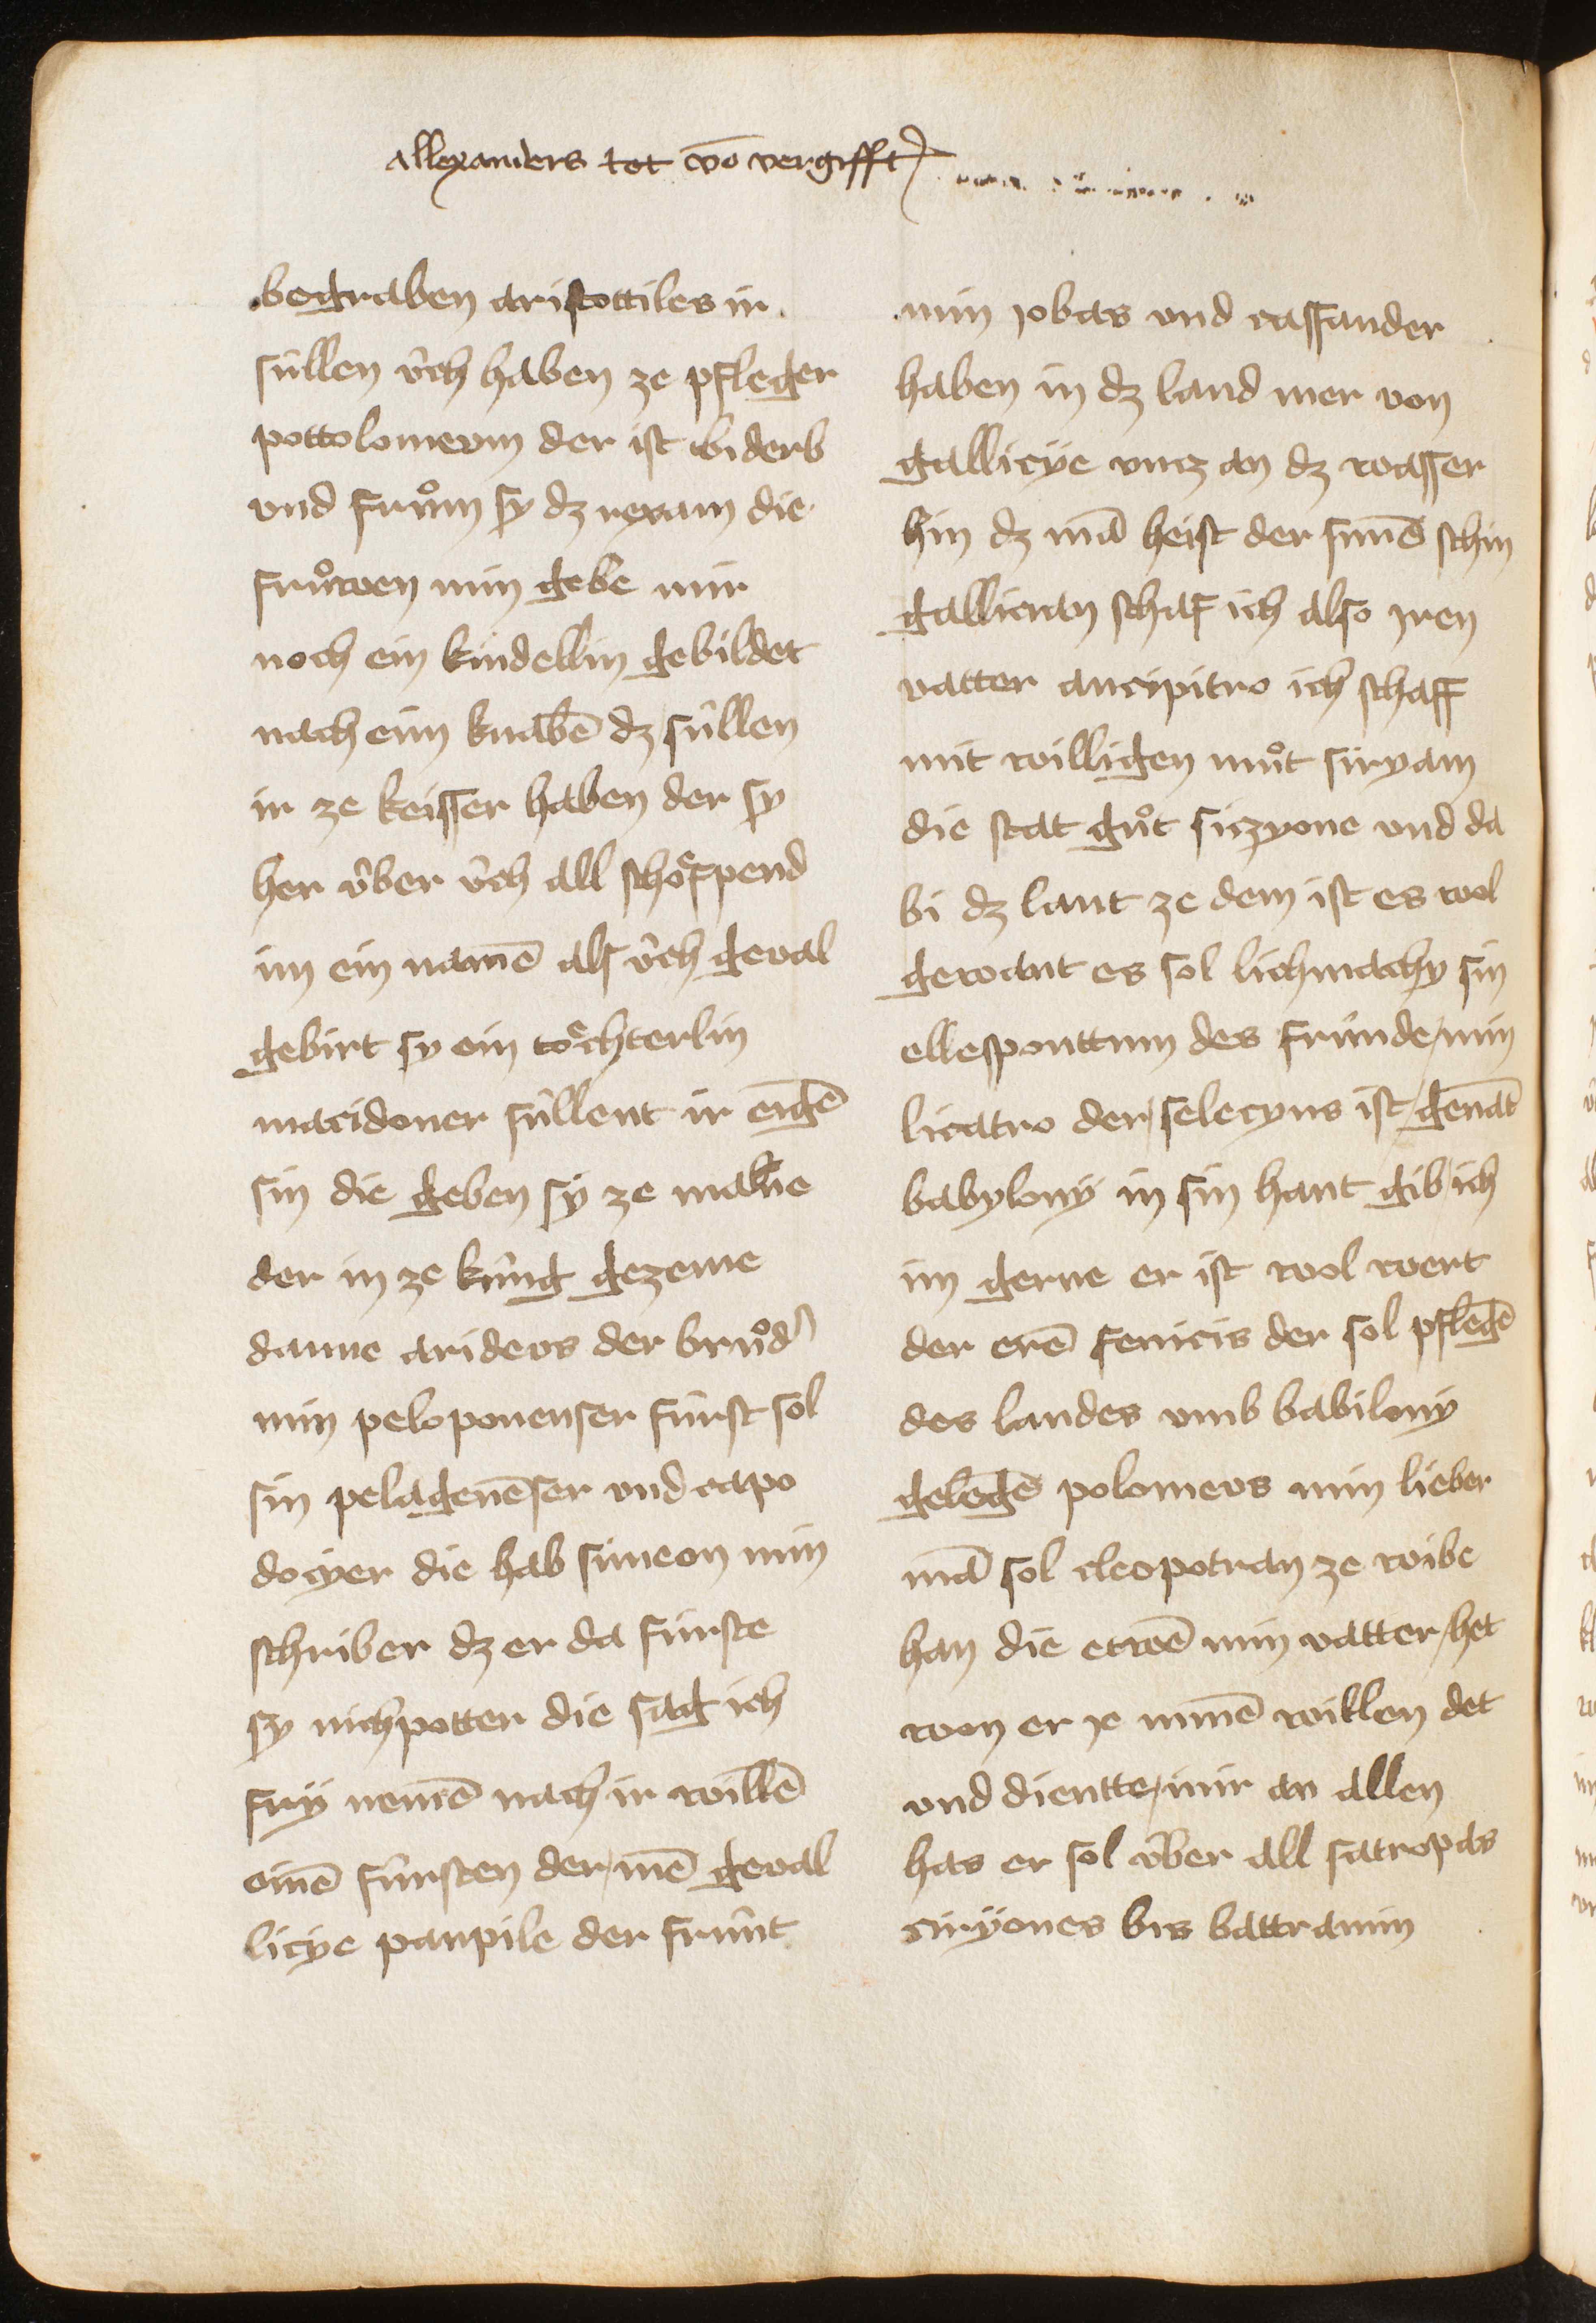 allexanders tot võ vergifft
begraben aristottiles ir
süllen v̂ch haben ze pfleger
pottolomeum der ist biderb
vnd frům sy dz rexam die
frůwen min gebe mir
noch ein kindellin gebildet
nach eim knabẽ dz süllen
ir ze keisser haben der sy
her v̂ber v̂ch all schöppend
im ein namẽ als v̂ch geval
gebirt sy ein töchterlin
macidoner süllent ir eigẽ
sin die geben sy ze manne
der in ze küng gezeme
danne arideos der brůdˀ
min peloponenser fürst sol
sin pelagenẽser vnd capo
docyer die hab simeon min
schriber dz er da fürste
sy nichpotter die sag ich
fry nemẽ nach ir willẽ
einẽ fürsten der inẽ geval
licye panpile der frünt
min jobas vnd cassander
haben in dz land mer von
gallicÿe vncz an dz wasser
hin dz mã heist der sunnẽ schin
gallican schaf ich also jren
vatter ancipitro ich schaff
mit willigen můt siryam
die stat gůt siczyone vnd da
bi dz lant ze dem ist es wol
gewant es sol lichmachy sin
ellesponttum des fründe min
licatro der selecyus ist genãt
babylony in sin hant gib ich
im gerne er ist wol wert
der erẽ fenicis der sol pflegẽ
des landes vmb babilony
gelegẽ polomeos min lieber
mã sol cleopotran ze wibe
han die etwẽ min vatter het
won er je minẽ willen det
vnd dientte mir an allen
has er sol v̂ber all satropas
sirÿones bis battranim